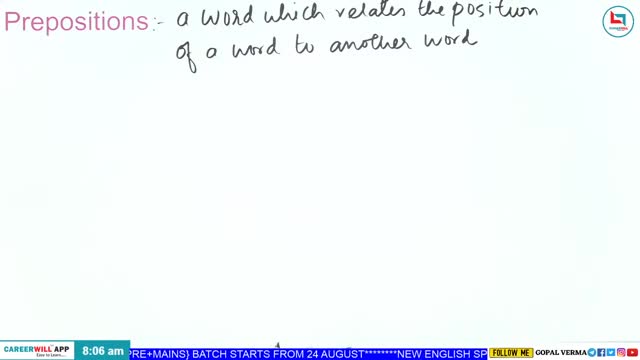 Prepositions :- a word which relates the position
of a word to another word
CAREERWILL APP
8:06 am
PRE+MAINS} BATCH STARTS FROM 24 AUGUST********NEW ENGLISH SP
FOLLOW ME
GOPAL VERMA